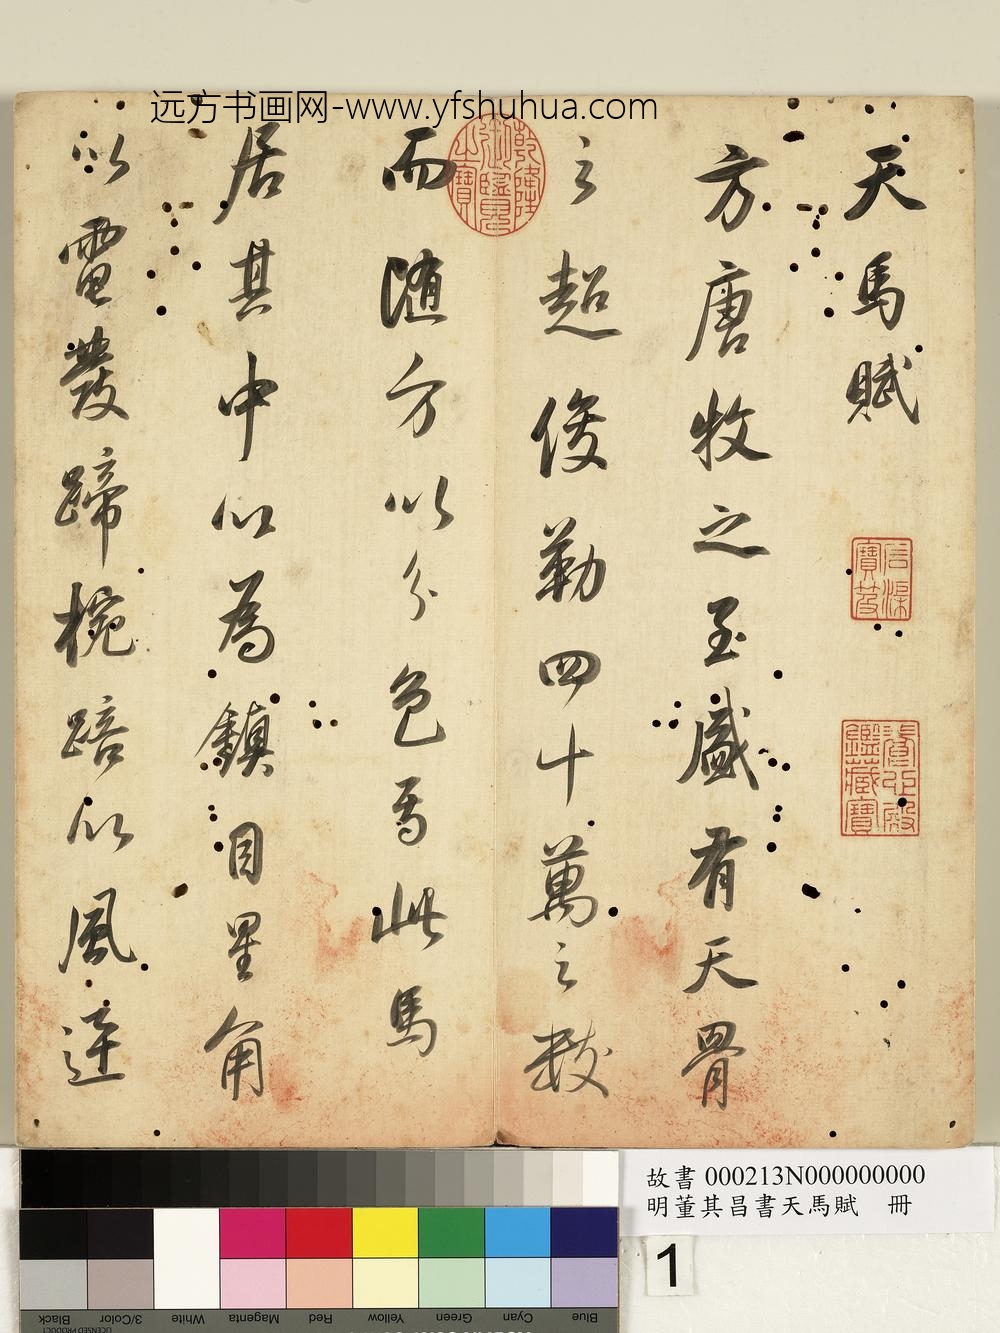 远方书画网-www.yfshuhua.com
天馬賦
石渠寶笈
養心殿鑑藏寶
方唐牧之至盛有天骨
之超俊勒四十萬之數
乾隆御覽之寶
而随方以分色焉此馬
居其中以為鎮目星角
以電發蹄椀踣以風迮
故書 000213N000000000
明董其昌書天馬賦 冊
1
Blue Cyan Green Yellow Red Magenta White 3/Color Black
LICENSED PRODUCT